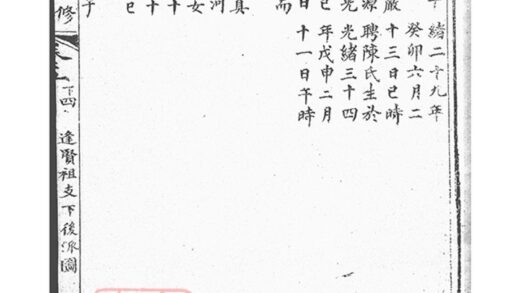 緒二十九年
癸卯六月二
十三日巳時
聘陳氏生於
光緒三十四
年戊申二月
十一日午時
而
河
女
十
十
巳
于
修
下四
逢賢祖支下後派圖